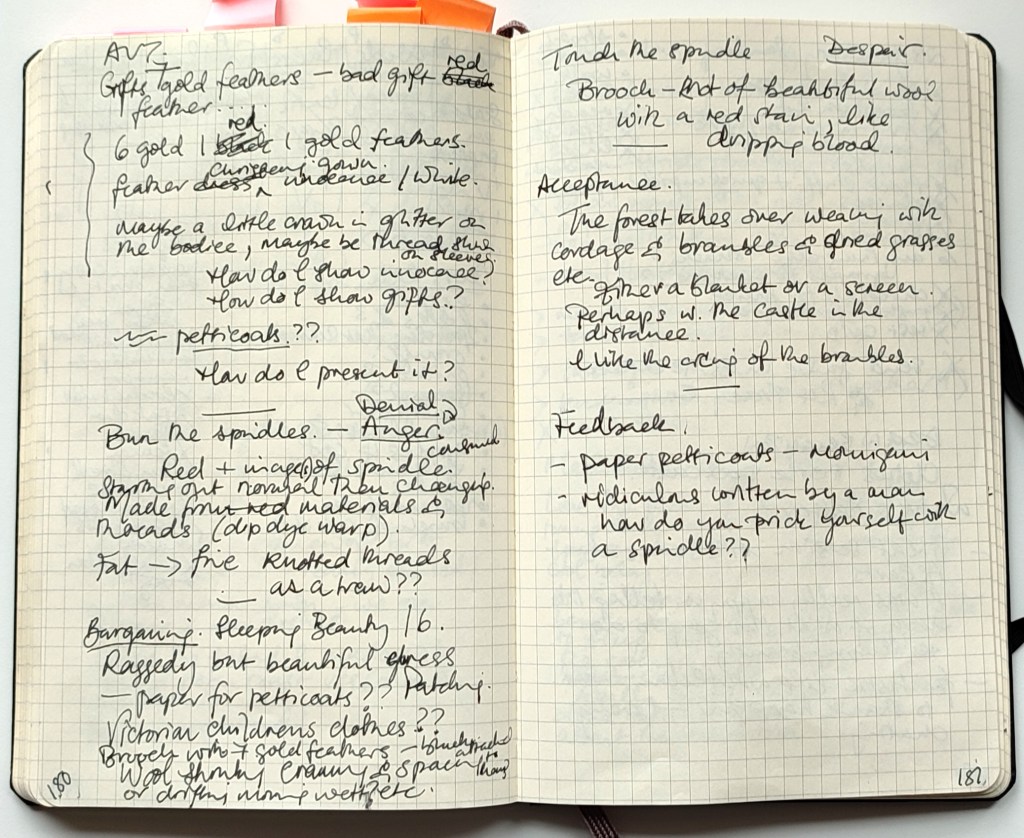 Gifts / gold feathers – bad gift red black
feather.....
red.
6 gold 1 black 1 gold feathers.
christening gown.
feather dress ^ innocence / White.
Maybe a little crown in glitter on
the bodice, maybe be thread
on sleeves
How do I show innocence?
How do I show gifts?
petticoats.??
How do I present it?
Denial
Burn the spindles. – Anger.
consumed
Red + image(s) of spindle.
Starting out normal then
Made from red materials &
threads (dip dye warp).
Fat → fine Knotted threads
as a ??
Bargaining. Sleeping Beauty 16.
Raggedy but beautiful dress
– paper for petticoats?? Patching.
Victorian childrens clothes??
with 7 gold feathers –
Wool &
or etc.
180
Touch the spindle Despair.
Brooch – of beautiful wool
with a red stain, like
dripping blood.
Acceptance.
The forest takes over weaving with
cordage & brambles & dried grasses
etc.
either a blanket or a screen.
Perhaps w. the castle in the
distance.
I like the of the brambles.
Feedback.
– paper petticoats – Momigami
– ridiculous written by a man
how do you prick yourself with
a spindle??